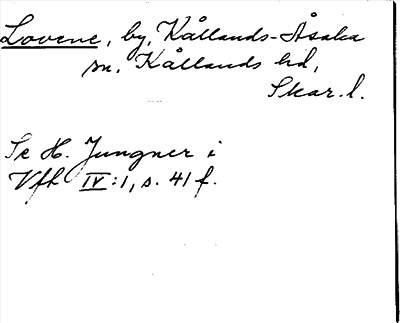 Lovene, by, Kållands-Åsaka
sn, Kållands hd,
Skar. l.
Se H. Jungner i
Vfh IV:1, s. 41 f.